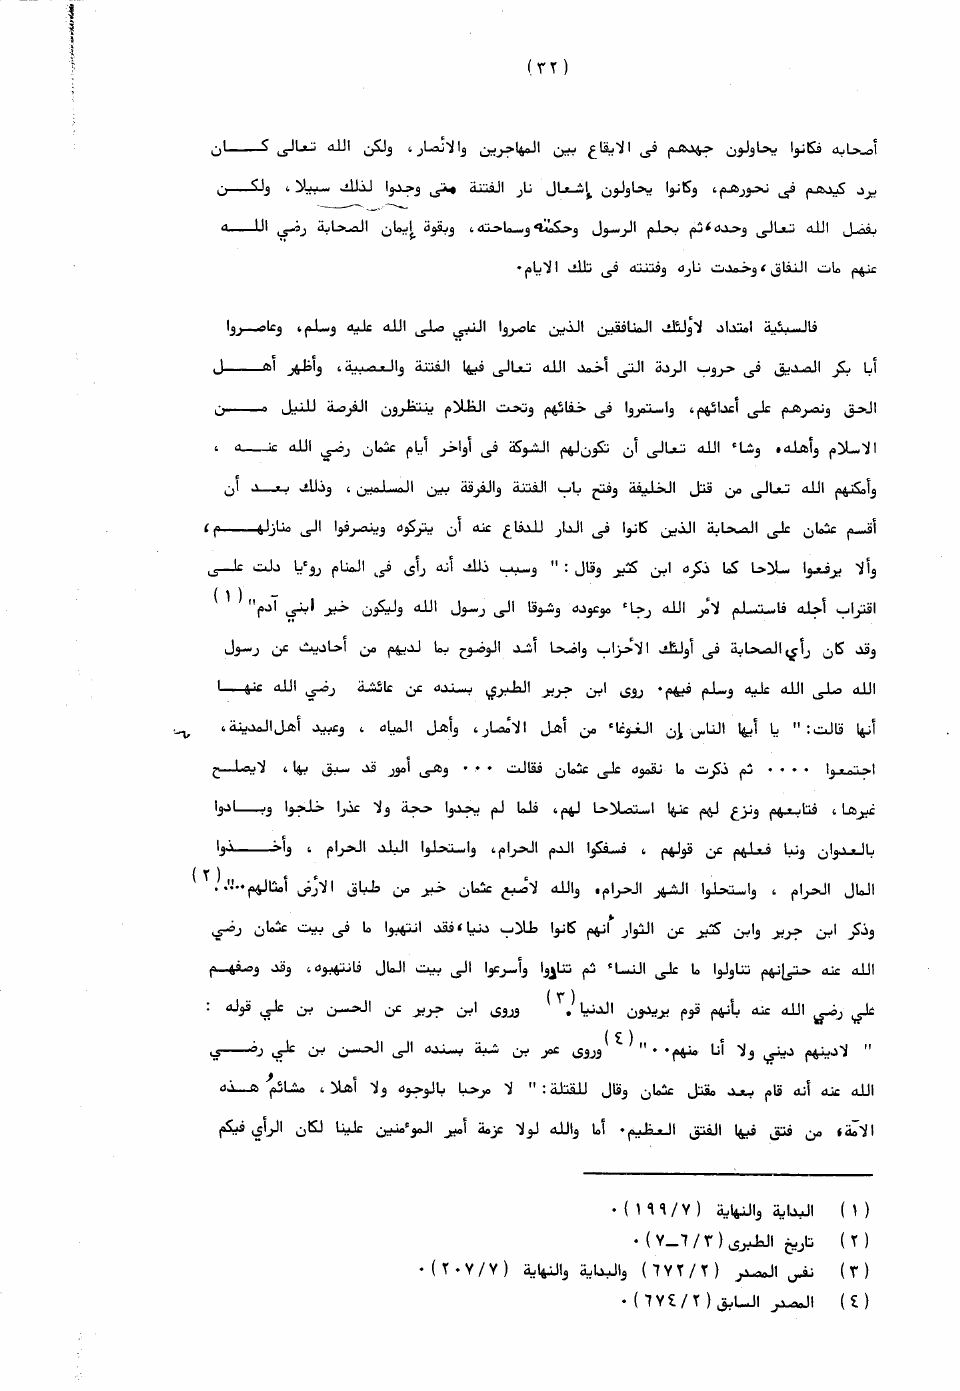 (٣٢)
أصحابه فكانوا يحاولون جهدهم فى الايقاع بين المهاجرين والأنصار، ولكن الله تعالى كـــان
يرد كيدهم فى نحورهم، وكانوا يحاولون إشعال نار الفتنة متى وجدوا لذلك سبيلا، ولكـــن
بفضل الله تعالى وحده، ثم بحلم الرسول وحكمته وسماحته، وبقوة إيمان الصحابة رضي اللـــه
عنهم مات النفاق، وخمدت ناره وفتنته فى تلك الايام.
فالسبئية امتداد لأولئك المنافقين الذين عاصروا النبي صلى الله عليه وسلم، وعاصــروا
أبا بكر الصديق فى حروب الردة التى أخمد الله تعالى فيها الفتنة والعصبية، وأظهر أهـــل
الحق ونصرهم على أعدائهم، واستمروا فى خفائهم وتحت الظلام ينتظرون الفرصة للنيل مـــن
الاسلام وأهله. وشاء الله تعالى أن تكون لهم الشوكة فى أواخر أيام عثمان رضي الله عنـــه ،
وأمكنهم الله تعالى من قتل الخليفة وفتح باب الفتنة والفرقة بين المسلمين، وذلك بعــد أن
أقسم عثمان على الصحابة الذين كانوا فى الدار للدفاع عنه أن يتركوه وينصرفوا الى منازلهـــم،
وألا يرفعوا سلاحا كما ذكره ابن كثير وقال: " وسبب ذلك أنه رأى فى المنام رؤيا دلت علــى
اقتراب أجله فاستسلم لأمر الله رجاء موعوده وشوقا الى رسول الله وليكون خير ابني آدم" (١)
وقد كان رأي الصحابة فى أولئك الأحزاب واضحا أشد الوضوح بما لديهم من أحاديث عن رسول
الله صلى الله عليه وسلم فيهم. روى ابن جرير الطبري بسنده عن عائشة رضي الله عنهـــا
أنها قالت: " يا أيها الناس إن الغوغاء من أهل الأمصار، وأهل المياه ، وعبيد أهل المدينة،
اجتمعوا .... ثم ذكرت ما نقموه على عثمان فقالت ... وهى أمور قد سبق بها، لايصلــح
غيرها، فتابعهم ونزع لهم عنها استصلاحا لهم، فلما لم يجدوا حجة ولا عذرا خلجوا وبــادوا
بالعدوان ونبا فعلهم عن قولهم ، فسفكوا الدم الحرام، واستحلوا البلد الحرام ، وأخـــذوا
المال الحرام ، واستحلوا الشهر الحرام. والله لأصبع عثمان خير من طباق الأرض أمثالهم..". (٢)
وذكر ابن جرير وابن كثير عن الثوار أنهم كانوا طلاب دنيا، فقد انتهبوا ما فى بيت عثمان رضي
الله عنه حتى إنهم تناولوا ما على النساء ثم تنادوا وأسرعوا الى بيت المال فانتهبوه، وقد وصفهــم
علي رضي الله عنه بأنهم قوم يريدون الدنيا. (٣) وروى ابن جرير عن الحسن بن علي قوله :
" لادينهم ديني ولا أنا منهم.." (٤) وروى عمر بن شبة بسنده الى الحسن بن علي رضــــي
الله عنه أنه قام بعد مقتل عثمان وقال للقتلة: " لا مرحبا بالوجوه ولا أهلا، مشائم هــذه
الأمة، من فتق فيها الفتق العظيم. أما والله لولا عزمة أمير المؤمنين علينا لكان الرأي فيكم
(١) البداية والنهاية (١٩٩/٧).
(٢) تاريخ الطبرى (٦/٣_٧).
(٣) نفس المصدر (٦٧٢/٢) والبداية والنهاية (٢٠٧/٧).
(٤) المصدر السابق (٦٧٤/٢).